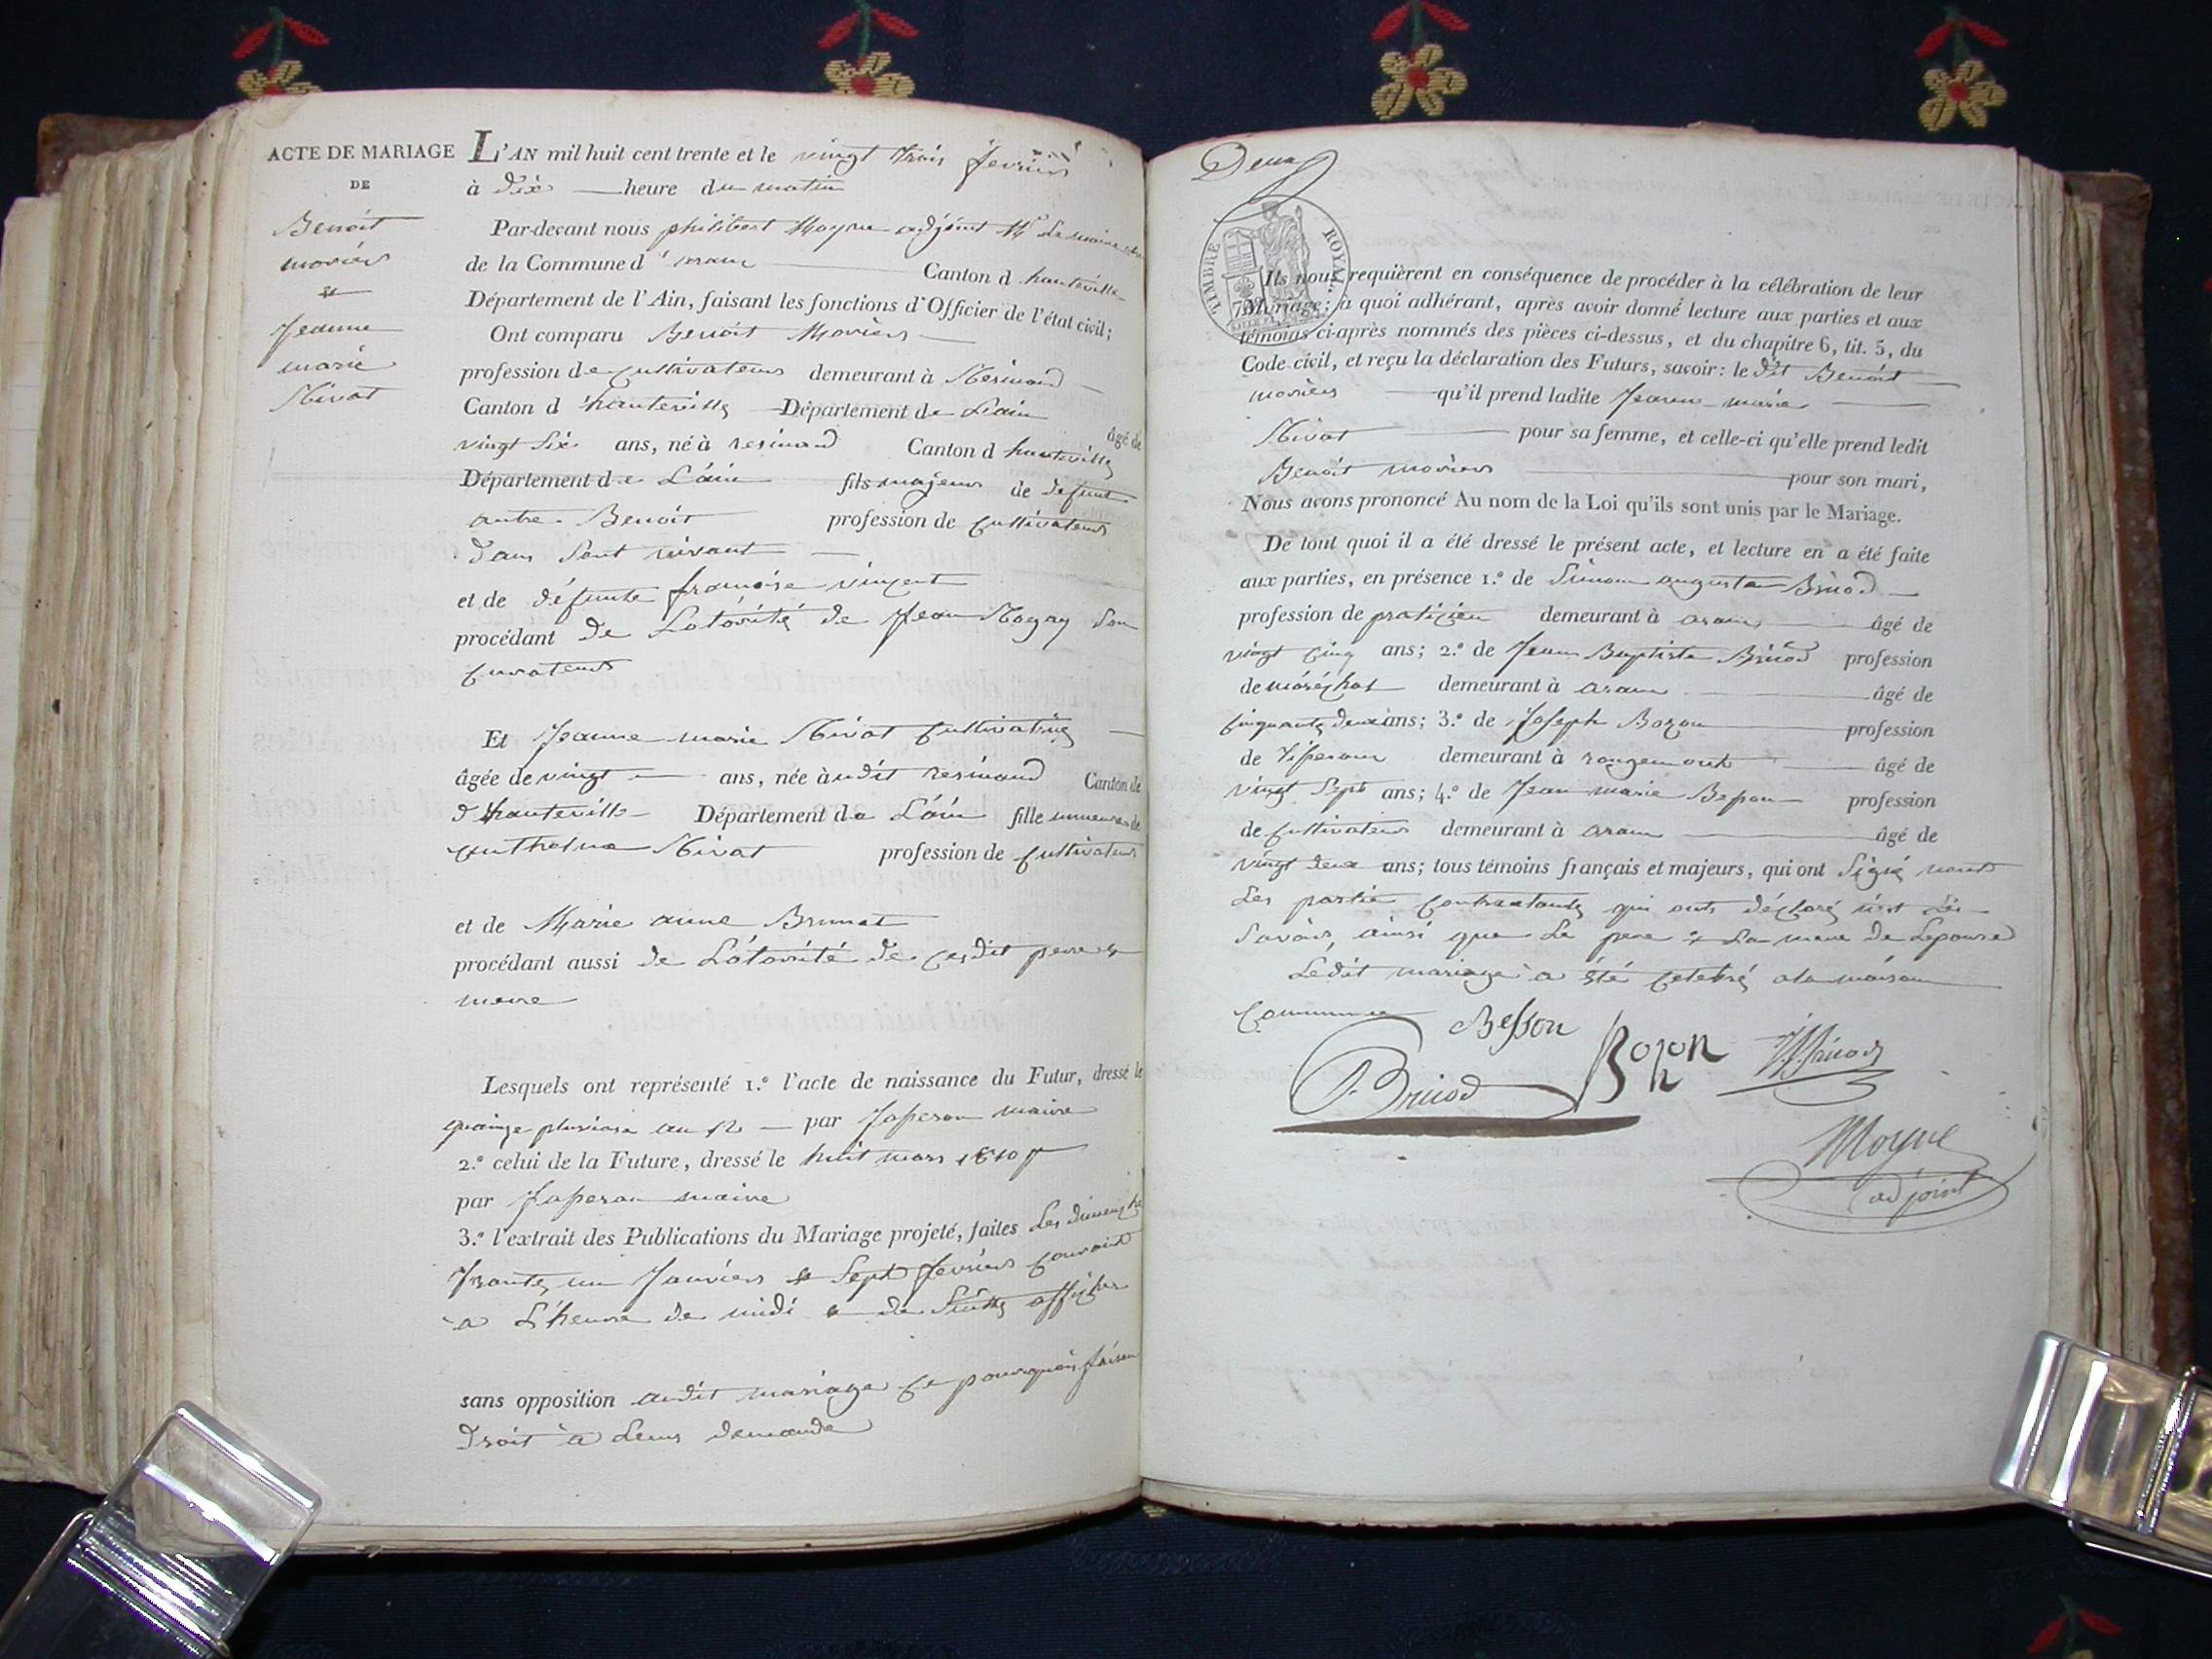 ACTE DE MARIAGE
DE
Benoit
moriér
et
Jeanne
marie
Nivat
L'AN mil huit cent trente et le vingt trois fevrier
à dix heure du matin
Par-devant nous philibert Moyne adjoint Mr Le maire
de la Commune d'aranc Canton d'hauteville
Département de l'Ain, faisant les fonctions d'Officier de l'état civil;
Ont comparu Benoit Moriér
profession de Cultivateur demeurant à Resinand
Canton d'hauteville Département de Lain âgé de
vingt six ans, né à resinand Canton d hauteville
Département de L'ain fils majeur de defunt
autre Benoit profession de Cultivateur
dans sont vivant
et de défunte francoise vincent
procédant de Lotorité de Jean Nogay son
Curateur
Et Jeanne marie Nivat Cultivatrice
âgée de vingt ans, née à udit resinand Canton de
d'hauteville Département de L'ain fille mineure de
anthelme Nivat profession de Cultivateur
et de Marie anne Brunet
procédant aussi de L'otorité de cesdit pere et
mere
Lesquels ont représenté 1.º l'acte de naissance du Futur, dressé le
quinze pluviose an 12 par Japeron maire
2.º celui de la Future, dressé le huit mars 1810
par Japeron maire
3.º l'extrait des Publications du Mariage projeté, faites Les dimenche
trante un Janvier et Sept fevrier Courant
a L'heure de midi et de suitte afficher
sans opposition audit mariage Ce pourquois faisan
droit a Leur demande
Deux
TIMBRE ROYAL
Ils nous requièrent en conséquence de procéder à la célébration de leur
Mariage; à quoi adhérant, après avoir donné lecture aux parties et aux
témoins ci-après nommés des pièces ci-dessus, et du chapitre 6, tit. 5, du
Code civil, et reçu la déclaration des Futurs, savoir: le dit Benoit
moriér qu'il prend ladite Jeanne marie
Nivat pour sa femme, et celle-ci qu'elle prend ledit
Benoit moriér pour son mari,
Nous avons prononcé Au nom de la Loi qu'ils sont unis par le Mariage.
De tout quoi il a été dressé le présent acte, et lecture en a été faite
aux parties, en présence 1.º de Simon auguste Brucod
profession de praticien demeurant à aranc âgé de
vingt Cinq ans; 2.º de Jean Baptiste Brucod profession
de maréchal demeurant à aranc âgé de
Cinquante deux ans; 3.º de Joseph Bozon profession
de Tisseran demeurant à rougemont âgé de
vingt Sept ans; 4.º de Jean marie Besson profession
de Cultivateur demeurant à aranc âgé de
vingt deux ans; tous témoins français et majeurs, qui ont Signé
Les partie Contractante qui onts déclaré
Savoir, ainsi que Le pere et La mere de Lepouse
Ledit mariage a été Celebré a la maison
Commune
Besson
Bozon
Moyne
adjoint